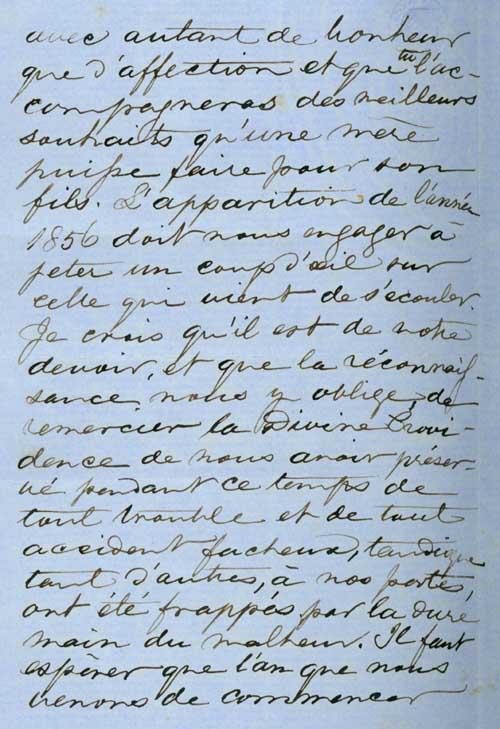 avec autant de bonheur
que d'affection et que tu l'ac-
compagneras des meilleurs
souhaits qu'une mère
puisse faire pour son
fils. L'apparition de l'année
1856 doit nous engager à
jeter un coup d'œil sur
celle qui vient de s'écouler.
Je crois qu'il est de notre
devoir, et que la réconnais-
sance nous y oblige, de
remercier la Divine Provi-
dence de nous avoir préser-
vé pendant ce temps de
tout trouble et de tout
accident facheux, tandique
tant d'autres, à nos portes,
ont été frappés par la dure
main du malheur. Il faut
espèrer que l'an que nous
venons de commencer